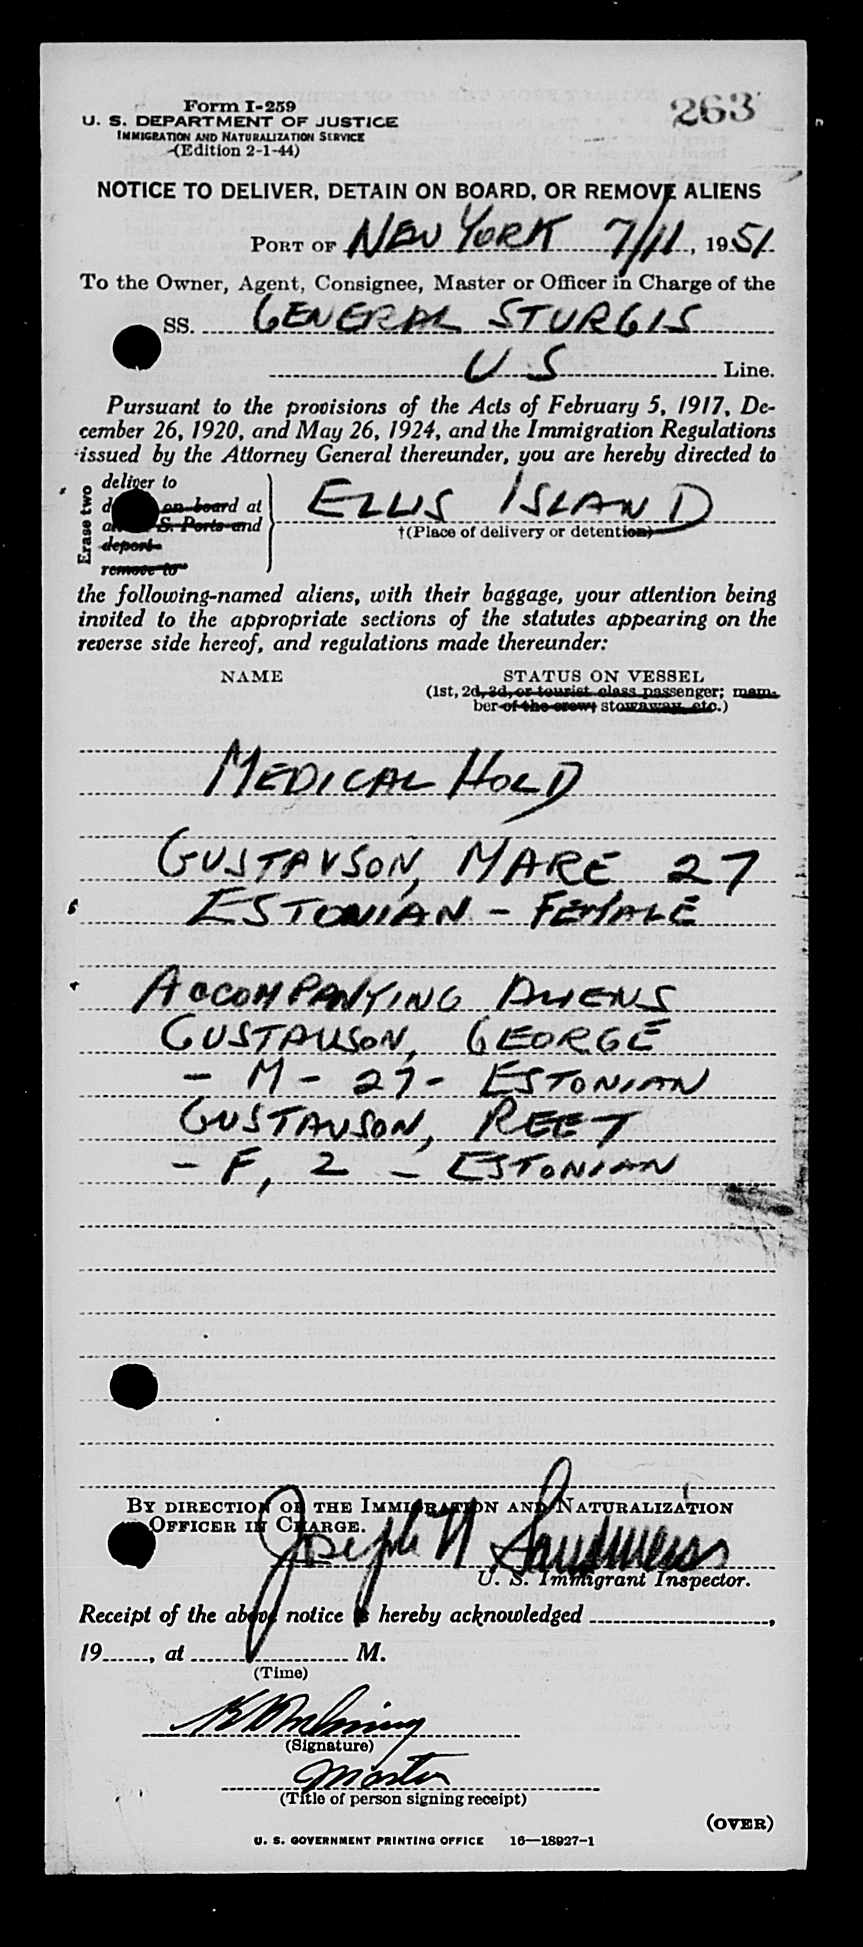 Form I-259
263
U. S. DEPARTMENT OF JUSTICE
IMMIGRATION AND NATURALIZATION SERVICE
(Edition 2-1-44)
NOTICE TO DELIVER, DETAIN ON BOARD, OR REMOVE ALIENS
PORT OF NEW YORK 7/11, 1951
To the Owner, Agent, Consignee, Master or Officer in Charge of the
SS. GENERAL STURGIS
U S Line.
Pursuant to the provisions of the Acts of February 5, 1917, De-
cember 26, 1920, and May 26, 1924, and the Immigration Regulations
issued by the Attorney General thereunder, you are hereby directed to
Erase two
deliver to
on board at
S. Ports and
deport
remove to
ELLIS ISLAND
†(Place of delivery or detention)
the following-named aliens, with their baggage, your attention being
invited to the appropriate sections of the statutes appearing on the
reverse side hereof, and regulations made thereunder:
NAME STATUS ON VESSEL
(1st, 2d, 3d, or tourist class passenger; mem-
ber of the crew; stowaway, etc.)
MEDICAL HOLD
GUSTAVSON, MARE 27
ESTONIAN - FEMALE
ACCOMPANYING ALIENS
GUSTAVSON, GEORGE
- M - 27 - ESTONIAN
GUSTAVSON, REET
- F, 2 - ESTONIAN
BY DIRECTION OF THE IMMIGRATION AND NATURALIZATION
OFFICER IN CHARGE.
Joseph N Sandweiss
U. S. Immigrant Inspector.
Receipt of the above notice is hereby acknowledged ,
19 , at M.
(Time)
(Signature)
Master
(Title of person signing receipt)
(OVER)
U. S. GOVERNMENT PRINTING OFFICE 16—18927-1